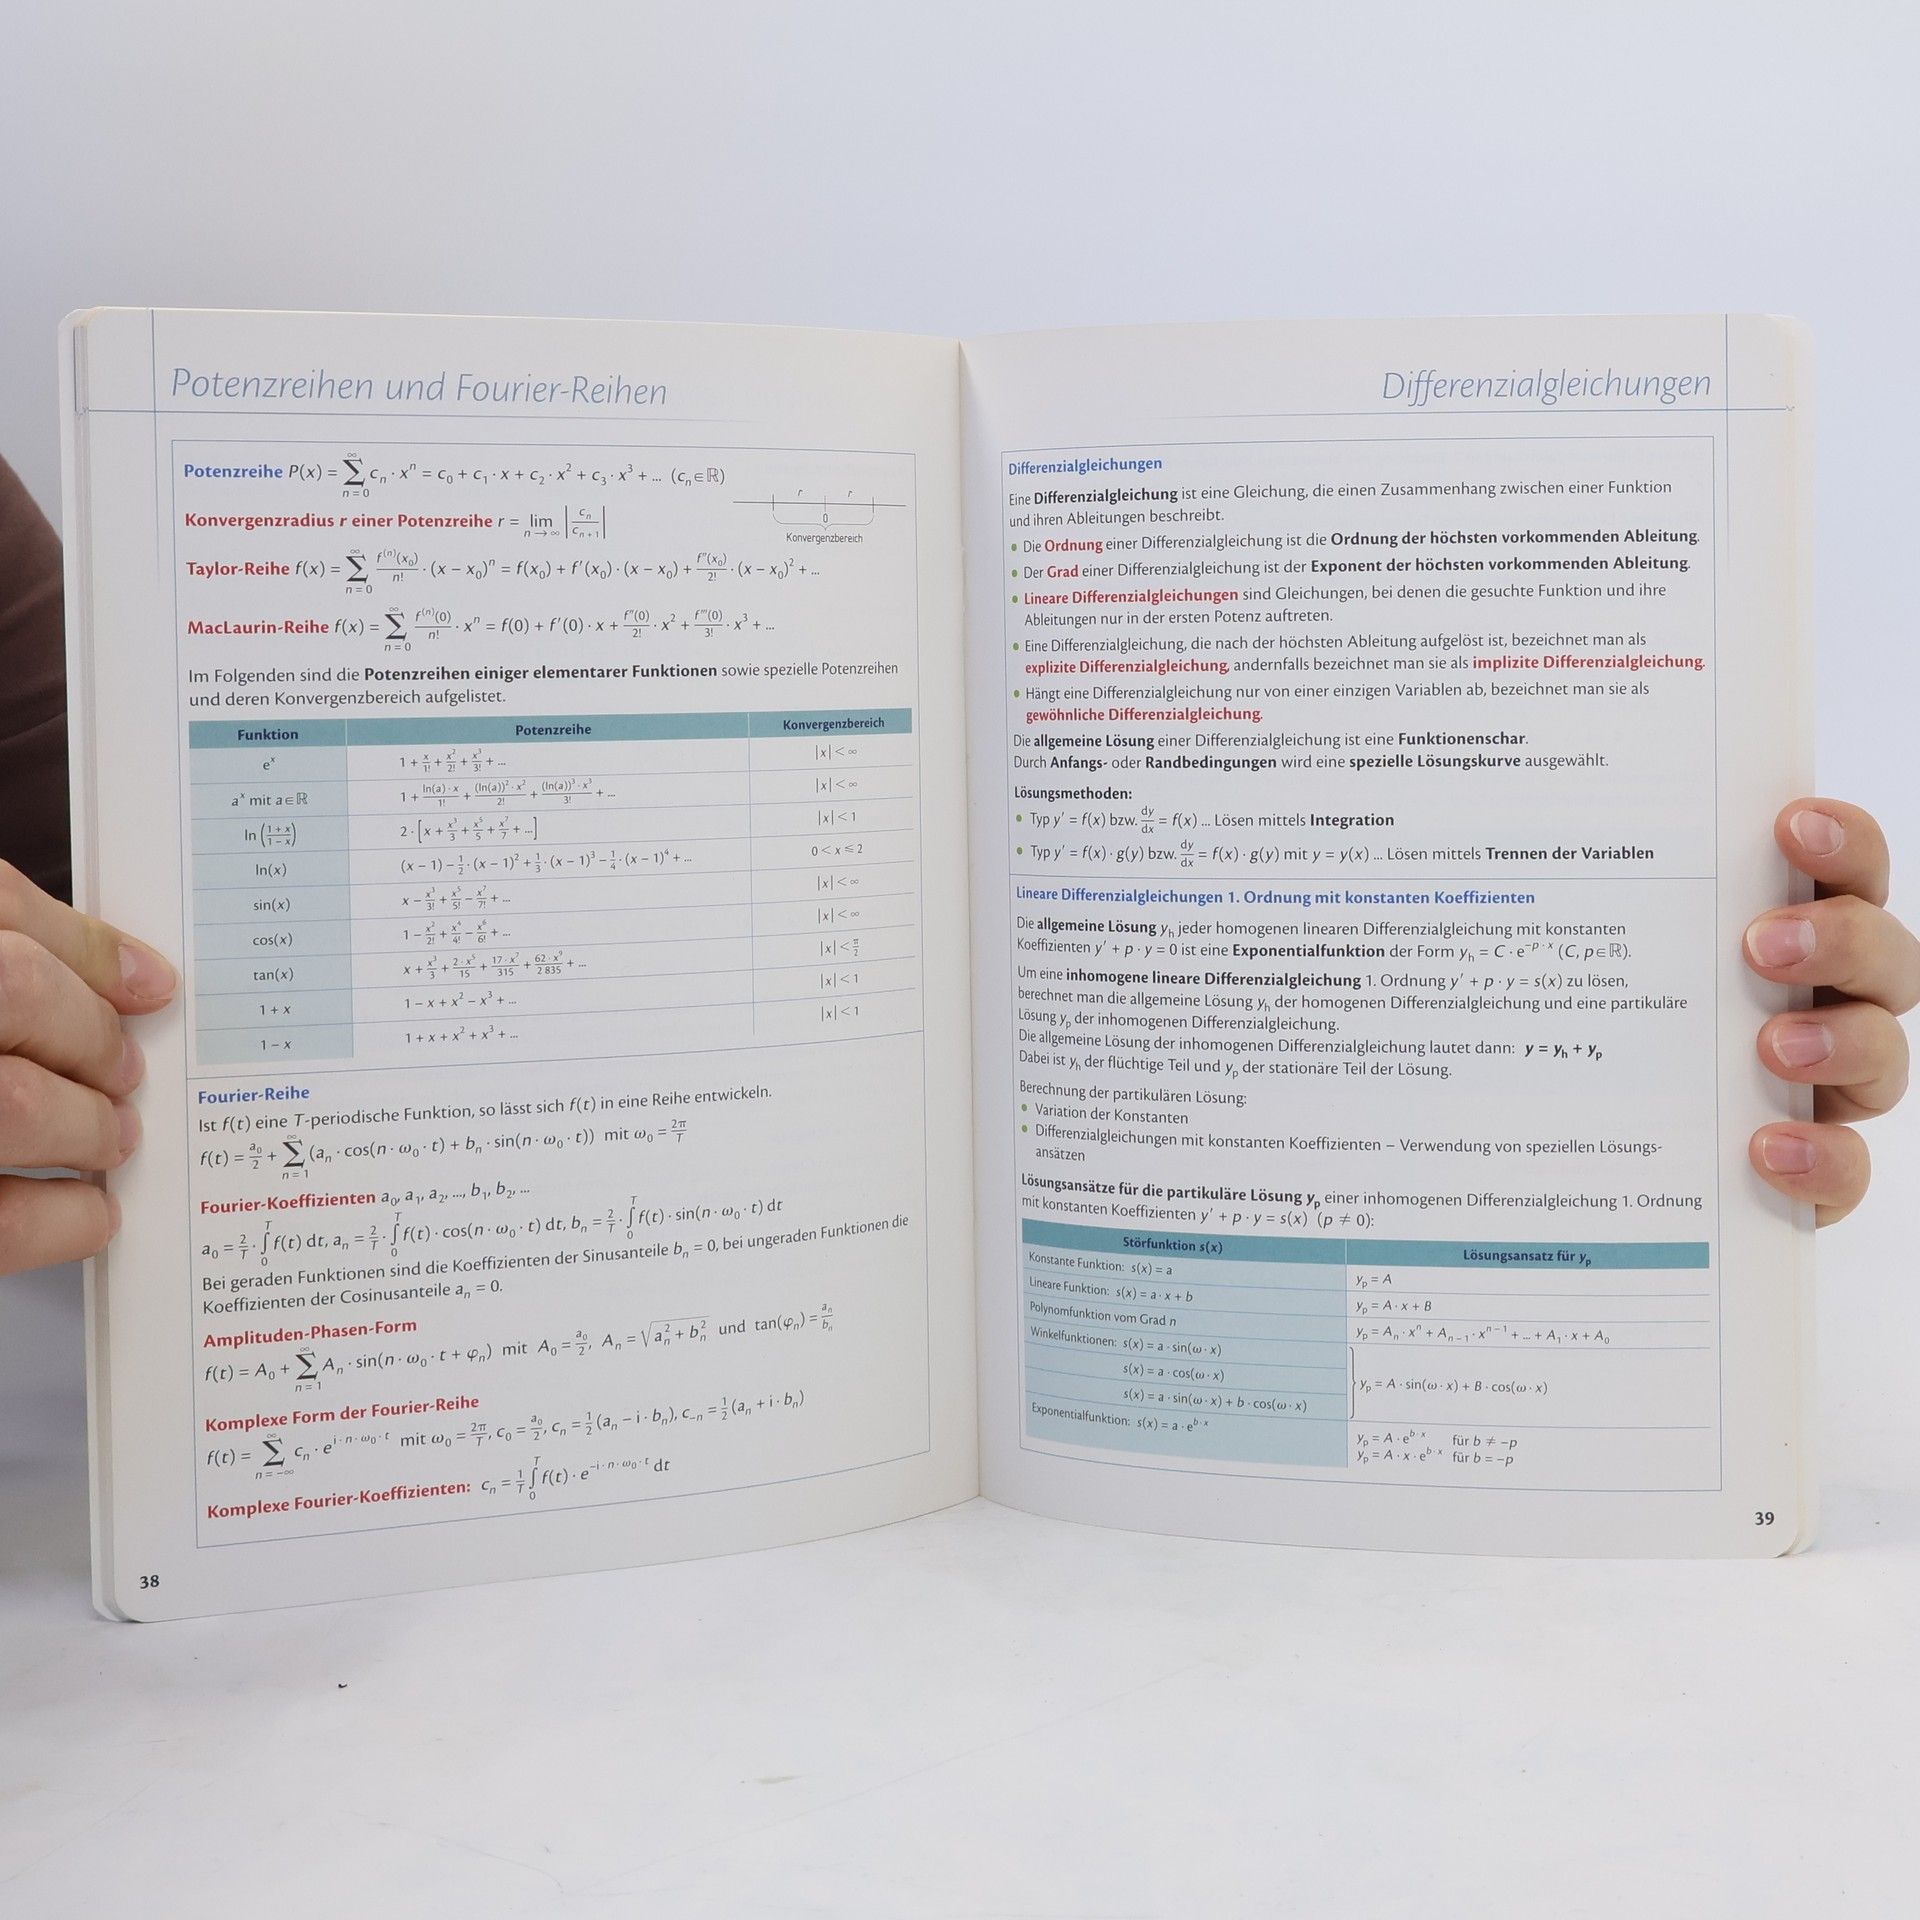 Potenzreihen und Fourier-Reihen
Potenzreihe P(x) = ∑_{n=0}^{∞} c_n · x^n = c_0 + c_1 · x + c_2 · x² + c_3 · x³ + ... (c_n ∈ ℝ)
r r
0
Konvergenzbereich
Konvergenzradius r einer Potenzreihe r = lim_{n→∞} |c_n / c_{n+1}|
Taylor-Reihe f(x) = ∑_{n=0}^{∞} f^{(n)}(x_0)/n! · (x − x_0)^n = f(x_0) + f′(x_0) · (x − x_0) + f″(x_0)/2! · (x − x_0)² + ...
MacLaurin-Reihe f(x) = ∑_{n=0}^{∞} f^{(n)}(0)/n! · x^n = f(0) + f′(0) · x + f″(0)/2! · x² + f‴(0)/3! · x³ + ...
Im Folgenden sind die Potenzreihen einiger elementarer Funktionen sowie spezielle Potenzreihen
und deren Konvergenzbereich aufgelistet.
Funktion Potenzreihe Konvergenzbereich
e^x 1 + x/1! + x²/2! + x³/3! + ... |x| < ∞
a^x mit a ∈ ℝ 1 + ln(a) · x/1! + (ln(a))² · x²/2! + (ln(a))³ · x³/3! + ... |x| < ∞
ln((1 + x)/(1 − x)) 2 · [x + x³/3 + x⁵/5 + x⁷/7 + ...] |x| < 1
ln(x) (x − 1) − 1/2 · (x − 1)² + 1/3 · (x − 1)³ − 1/4 · (x − 1)⁴ + ... 0 < x ≤ 2
sin(x) x − x³/3! + x⁵/5! − x⁷/7! + ... |x| < ∞
cos(x) 1 − x²/2! + x⁴/4! − x⁶/6! + ... |x| < ∞
tan(x) x + x³/3 + 2 · x⁵/15 + 17 · x⁷/315 + 62 · x⁹/2 835 + ... |x| < π/2
1 + x 1 − x + x² − x³ + ... |x| < 1
1 − x 1 + x + x² + x³ + ... |x| < 1
Fourier-Reihe
Ist f(t) eine T-periodische Funktion, so lässt sich f(t) in eine Reihe entwickeln.
f(t) = a_0/2 + ∑_{n=1}^{∞} (a_n · cos(n · ω_0 · t) + b_n · sin(n · ω_0 · t)) mit ω_0 = 2π/T
Fourier-Koeffizienten a_0, a_1, a_2, ..., b_1, b_2, ...
a_0 = 2/T · ∫_0^T f(t) dt, a_n = 2/T · ∫_0^T f(t) · cos(n · ω_0 · t) dt, b_n = 2/T · ∫_0^T f(t) · sin(n · ω_0 · t) dt
Bei geraden Funktionen sind die Koeffizienten der Sinusanteile b_n = 0, bei ungeraden Funktionen die
Koeffizienten der Cosinusanteile a_n = 0.
Amplituden-Phasen-Form
f(t) = A_0 + ∑_{n=1}^{∞} A_n · sin(n · ω_0 · t + φ_n) mit A_0 = a_0/2, A_n = √(a_n² + b_n²) und tan(φ_n) = a_n/b_n
Komplexe Form der Fourier-Reihe
f(t) = ∑_{n=−∞}^{∞} c_n · e^{i · n · ω_0 · t} mit ω_0 = 2π/T, c_0 = a_0/2, c_n = 1/2 (a_n − i · b_n), c_{−n} = 1/2 (a_n + i · b_n)
Komplexe Fourier-Koeffizienten: c_n = 1/T ∫_0^T f(t) · e^{−i · n · ω_0 · t} dt
38
Differenzialgleichungen
Differenzialgleichungen
Eine Differenzialgleichung ist eine Gleichung, die einen Zusammenhang zwischen einer Funktion
und ihren Ableitungen beschreibt.
• Die Ordnung einer Differenzialgleichung ist die Ordnung der höchsten vorkommenden Ableitung.
• Der Grad einer Differenzialgleichung ist der Exponent der höchsten vorkommenden Ableitung.
• Lineare Differenzialgleichungen sind Gleichungen, bei denen die gesuchte Funktion und ihre
Ableitungen nur in der ersten Potenz auftreten.
• Eine Differenzialgleichung, die nach der höchsten Ableitung aufgelöst ist, bezeichnet man als
explizite Differenzialgleichung, andernfalls bezeichnet man sie als implizite Differenzialgleichung.
• Hängt eine Differenzialgleichung nur von einer einzigen Variablen ab, bezeichnet man sie als
gewöhnliche Differenzialgleichung.
Die allgemeine Lösung einer Differenzialgleichung ist eine Funktionenschar.
Durch Anfangs- oder Randbedingungen wird eine spezielle Lösungskurve ausgewählt.
Lösungsmethoden:
• Typ y′ = f(x) bzw. dy/dx = f(x) ... Lösen mittels Integration
• Typ y′ = f(x) · g(y) bzw. dy/dx = f(x) · g(y) mit y = y(x) ... Lösen mittels Trennen der Variablen
Lineare Differenzialgleichungen 1. Ordnung mit konstanten Koeffizienten
Die allgemeine Lösung y_h jeder homogenen linearen Differenzialgleichung mit konstanten
Koeffizienten y′ + p · y = 0 ist eine Exponentialfunktion der Form y_h = C · e^{−p · x} (C, p ∈ ℝ).
Um eine inhomogene lineare Differenzialgleichung 1. Ordnung y′ + p · y = s(x) zu lösen,
berechnet man die allgemeine Lösung y_h der homogenen Differenzialgleichung und eine partikuläre
Lösung y_p der inhomogenen Differenzialgleichung.
Die allgemeine Lösung der inhomogenen Differenzialgleichung lautet dann: y = y_h + y_p
Dabei ist y_h der flüchtige Teil und y_p der stationäre Teil der Lösung.
Berechnung der partikulären Lösung:
• Variation der Konstanten
• Differenzialgleichungen mit konstanten Koeffizienten – Verwendung von speziellen Lösungs-
ansätzen
Lösungsansätze für die partikuläre Lösung y_p einer inhomogenen Differenzialgleichung 1. Ordnung
mit konstanten Koeffizienten y′ + p · y = s(x) (p ≠ 0):
Störfunktion s(x) Lösungsansatz für y_p
Konstante Funktion: s(x) = a y_p = A
Lineare Funktion: s(x) = a · x + b y_p = A · x + B
Polynomfunktion vom Grad n y_p = A_n · x^n + A_{n−1} · x^{n−1} + ... + A_1 · x + A_0
Winkelfunktionen: s(x) = a · sin(ω · x)
s(x) = a · cos(ω · x) y_p = A · sin(ω · x) + B · cos(ω · x)
s(x) = a · sin(ω · x) + b · cos(ω · x)
Exponentialfunktion: s(x) = a · e^{b · x} y_p = A · e^{b · x} für b ≠ −p
y_p = A · x · e^{b · x} für b = −p
39